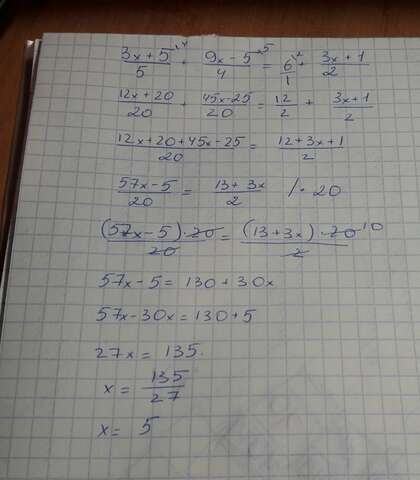 3x+5/5 ·4 + 9x-5/4 ·5 = 6/1 ·2 + 3x+1/2
12x+20/20 + 45x-25/20 = 12/2 + 3x+1/2
12x+20+45x-25/20 = 12+3x+1/2
57x-5/20 = 13+3x/2 /·20
(57x-5)·20/20 = (13+3x)·20 10/2
57x-5=130+30x
57x-30x=130+5
27x = 135.
x = 135/27
x = 5